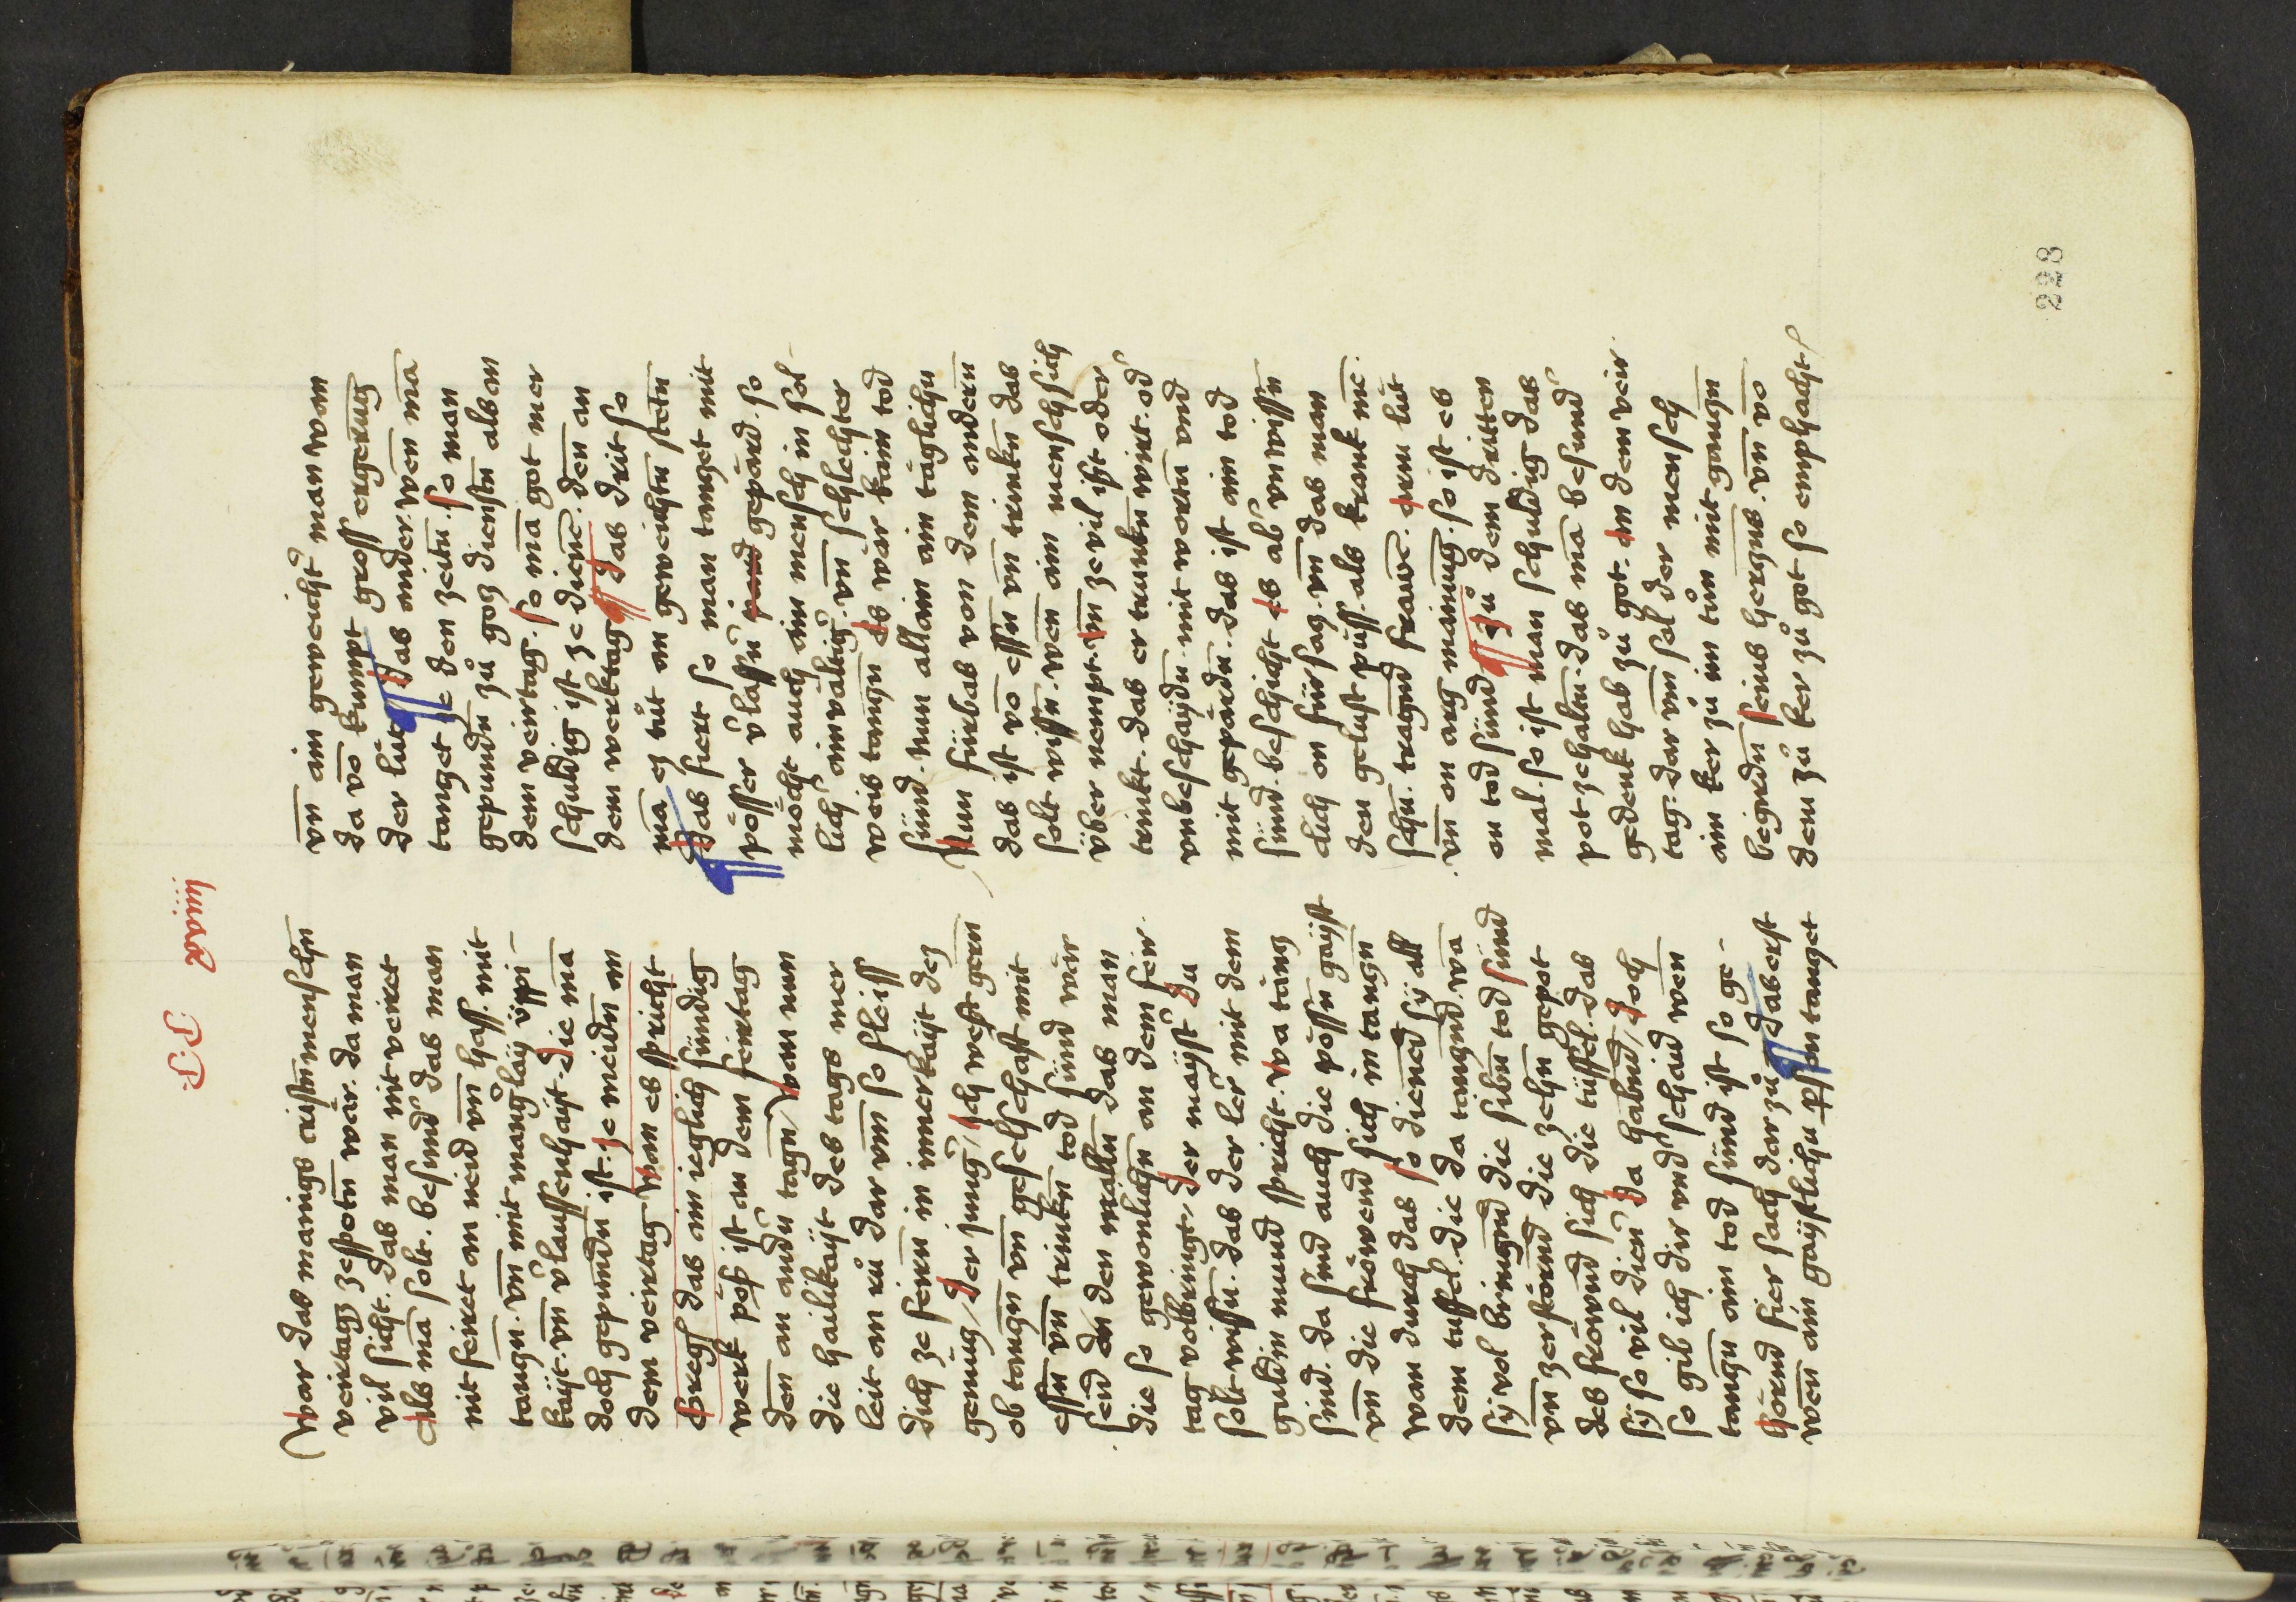 CC xviiij
war das manigs cristm̄ menschn̄
veirtagz ze spotn̄ wär. da man
vil sicht. das man nit veiret
Als mā solt. besund' das man
nit feiret on neid vn̄ hass. mit
tanzn̄. vn̄ mit mang'laÿ üppi-
kaÿt. vn̄ v'laussenhaÿt. die mā
doch gepundn̄ ist. ze meidn̄ an
dem veirtag wan es spricht
Gregͥ das ain ieglich sündig
werk pöß ist an dem feirtag
den̄ an andn̄ tagn̄ wan nun
die hailikaÿt des tags mer
leit an rů dar vm̄ so fleiss
dich ze feirn̄ in innerkaÿt dez
genüng. Der jung' ich west gern̄
ob tanzn̄ vn̄ geselschaft mit
essn̄ vn̄ trinkn̄ tod sünd wär
send an den mālln̄ das man
die so gewonlichn̄ an dem feir
tag volbringt. Der maÿst' du
solt wissn̄. das der ler' mit dem
guldin mund spricht. wa tänz
sind. da sind auch die pössn̄ gaÿst
vn̄ die fröwend sich in tanzn̄
wan durch das so dienend sÿ all
dem tuffel. die da tanzn̄d. wā
sÿ vol bringn̄d die sibn̄ tod sünd
vn̄ zerstörn̄d die zehn̄ gepot
des fröwn̄d sich die tüffel. das
sÿ so vil dien' da habn̄d. doch
so gib ich dir vnd'schaid wen̄
tanzn̄ ain tod sünd ist so ge-
hörn̄d fier sach dar zů ¶ das erst
wen̄ ain gaÿstlichn̄ p̱son tanzet
vn̄ ain geweicht' man wan
da vō kumpt gross ergerung
der lüt ¶ das ander wen̄ mā
tanzet ze den zeitn̄. so man
gepundn̄ zů goz dienstn̄ als an
dem veirtag. so mā got mer
schuldig ist ze dienē. den̄ an
dem werktag ¶ das drit so
mā ez tůt an geweichtn̄ stetn̄
¶ das fiert so man tanzet mit
pösser v'lassn̄ gepärd. so
möcht auch ain mensch in söl-
lich' ainvältig' vn̄ schlechter
weis tanzn̄ es wär kain tod
sünd. nun allain ain täglichn̄
Nun fürbas von dem andern̄
das ist vō essn̄ vn̄ trinkn̄ das
solt wissn̄. wen̄ ain mensch sich
über nempt. vn̄ ze vil ißt oder
trinkt. das er trunkn̄ wirt. od'
vnbeschaÿdn̄. mit wortn̄ vnd
mit gepärdn̄. das ist ain tod
sünd. beschicht es ab' vnwissn̄
clich on für saz. vn̄ das man
den gelust püss. als krank mē
schn̄. tragn̄d frawē. arm lüt
vn̄ on arg mainūg. so ist es
on tod sünd ¶ Zů dem dritten
mal. so ist man schuldig das
pot ze haln̄. das mā besund'
gedenk hab zů got. an dem veir
tag. dar vm̄ sol der mensch
ain ker zů im tůn mit ganzn̄
begirdn̄ seins herzns. vn̄ vō
dem zů ker zů got so emphacht
228